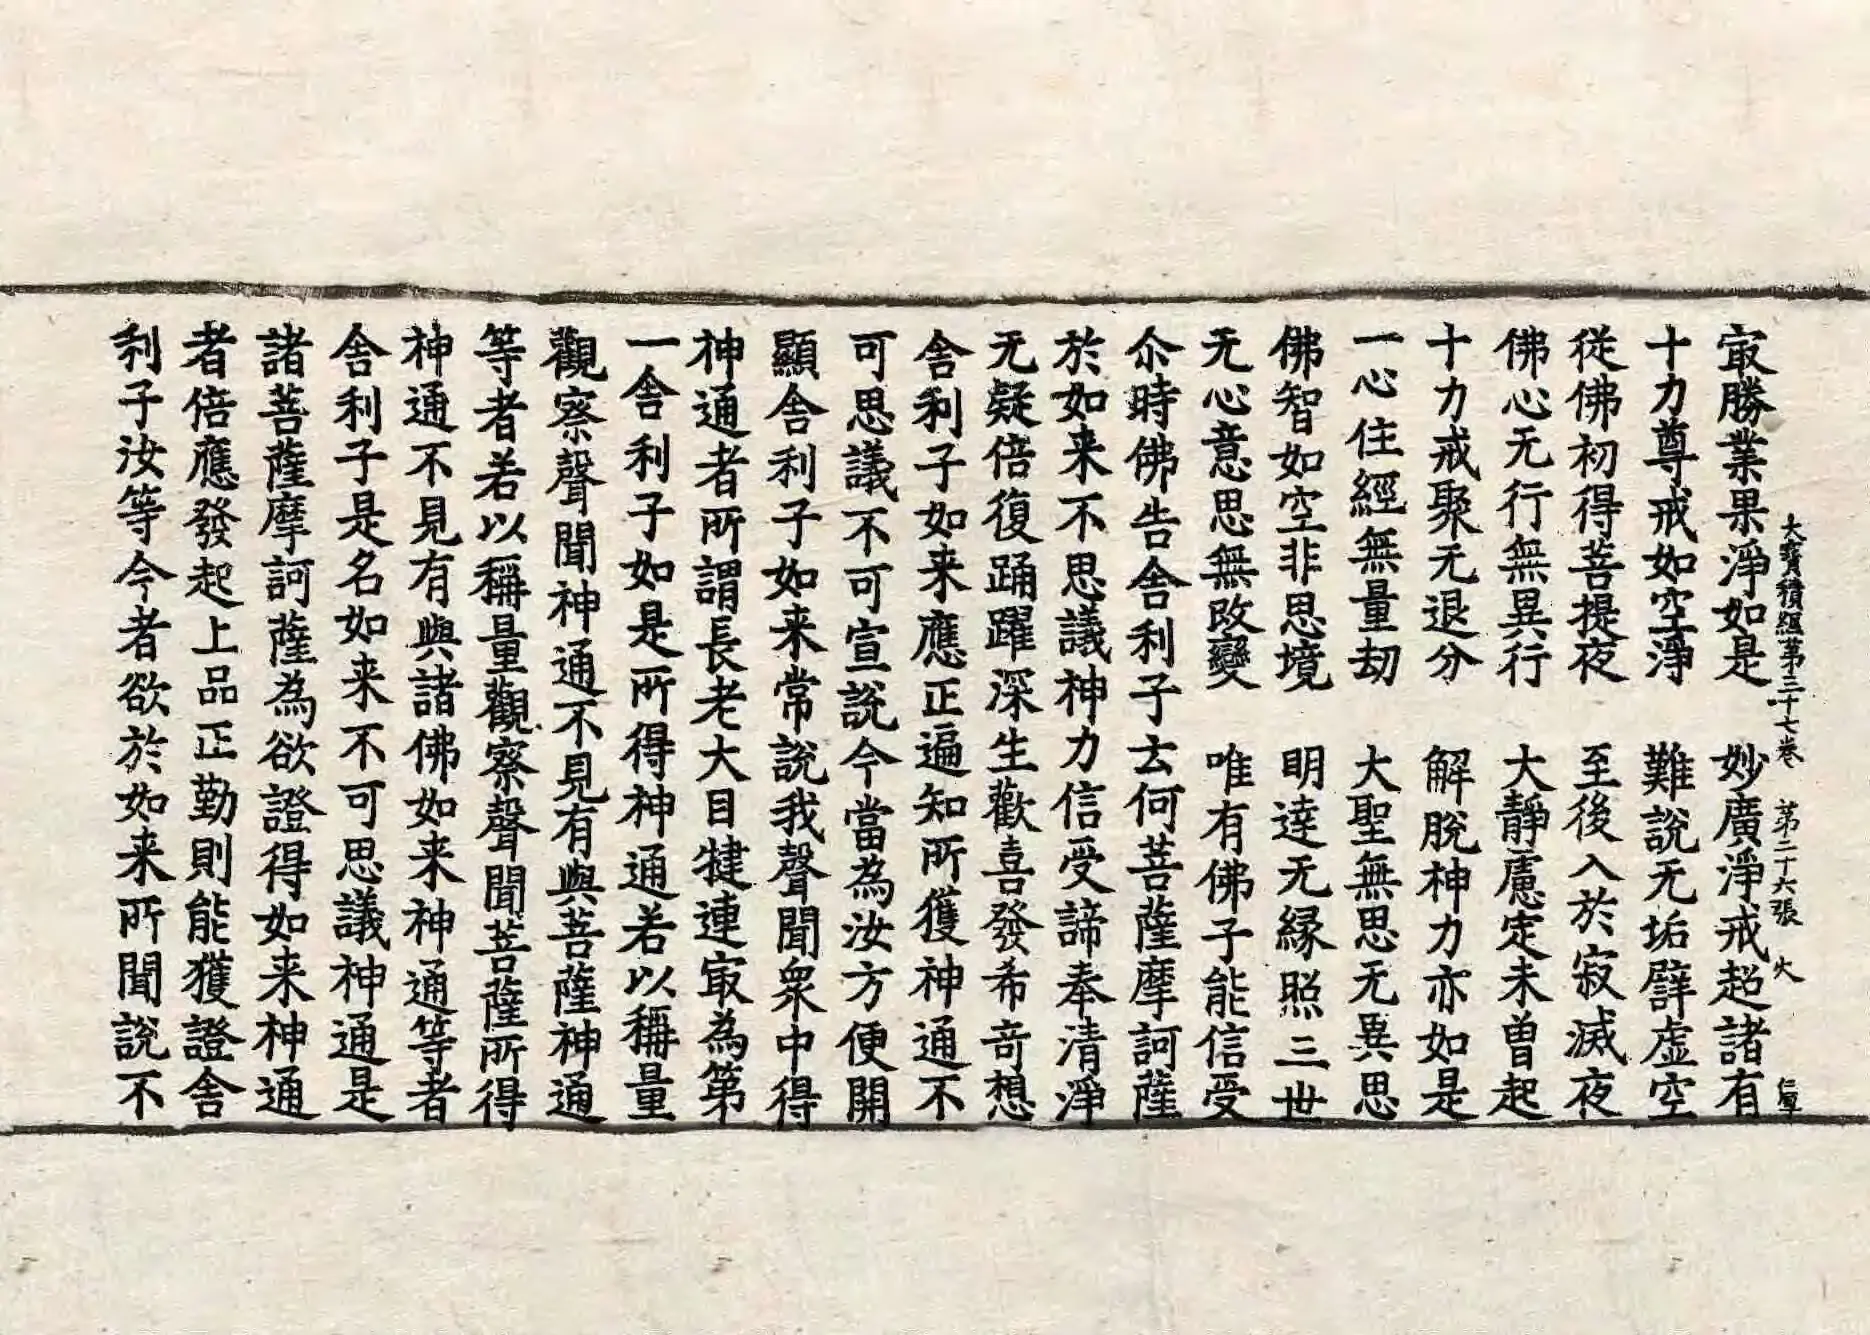 大寶積經第三十七卷　第二十六張　火
㝡勝業果淨如是　妙廣淨戒超諸有
十力尊戒如空淨　難說无垢辟虛空
從佛初得菩提夜　至後入於寂滅夜
佛心无行無異行　大靜慮定未曾起
十力戒聚无退分　解脫神力亦如是
一心住經無量劫　大聖無思无異思
佛智如空非思境　明達无緣照三世
无心意思無改變　唯有佛子能信受
尒時佛告舍利子云何菩薩摩訶薩
於如来不思議神力信受諦奉清淨
无疑倍復踊躍深生歡喜發希奇想
舍利子如来應正遍知所獲神通不
可思議不可宣說今當為汝方便開
顯舍利子如来常說我聲聞眾中得
神通者所謂長老大目揵連㝡為第
一舍利子如是所得神通若以稱量
觀察聲聞神通不見有與菩薩神通
等者若以稱量觀察聲聞菩薩所得
神通不見有與諸佛如来神通等者
舍利子是名如来不可思議神通是
諸菩薩摩訶薩為欲證得如来神通
者倍應發起上品正勤則能獲證舍
利子汝等今者欲於如来所聞說不